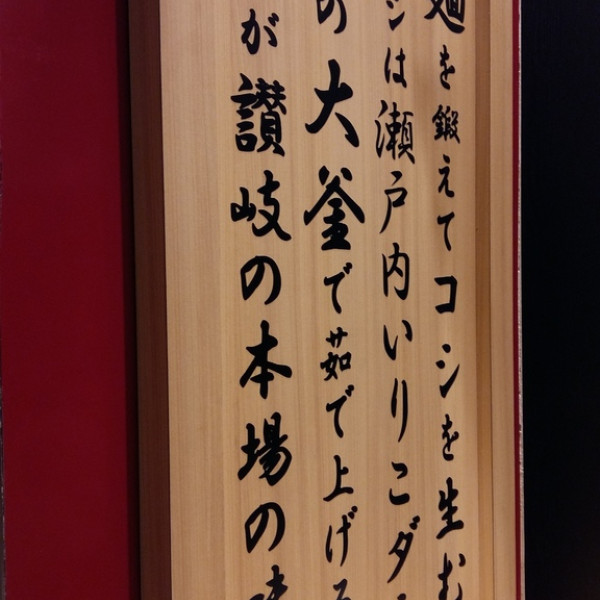 を鍛えてコシを生む
シは瀬戸内いりこダ
の大釜で茹で上げる
が讃岐の本場の